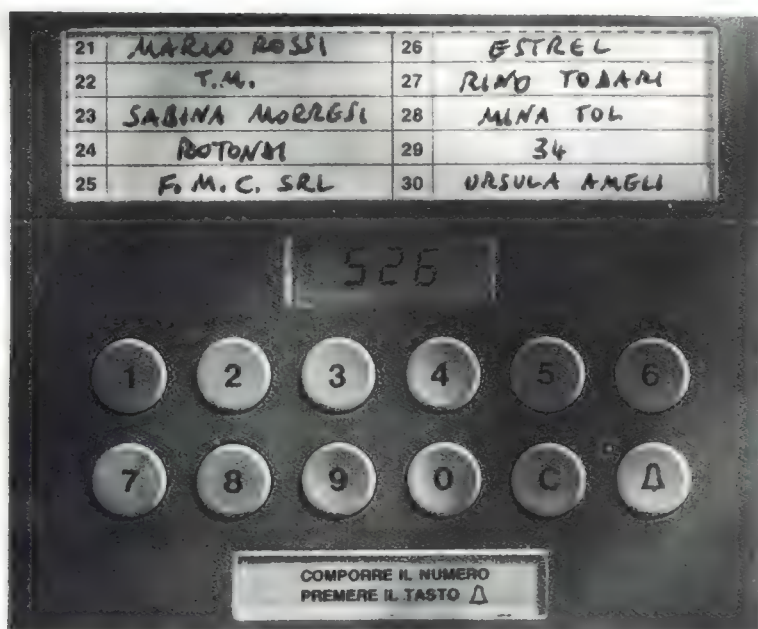 21 MARIO ROSSI 26 ESTREL
22 T.M. 27 RINO TODARI
23 SABINA MORRESI 28 MINA TOL
24 ROTONDI 29 34
25 F.M.C. SRL 30 URSULA AMELI
526
1 2 3 4 5 6
7 8 9 0 C
COMPORRE IL NUMERO
PREMERE IL TASTO